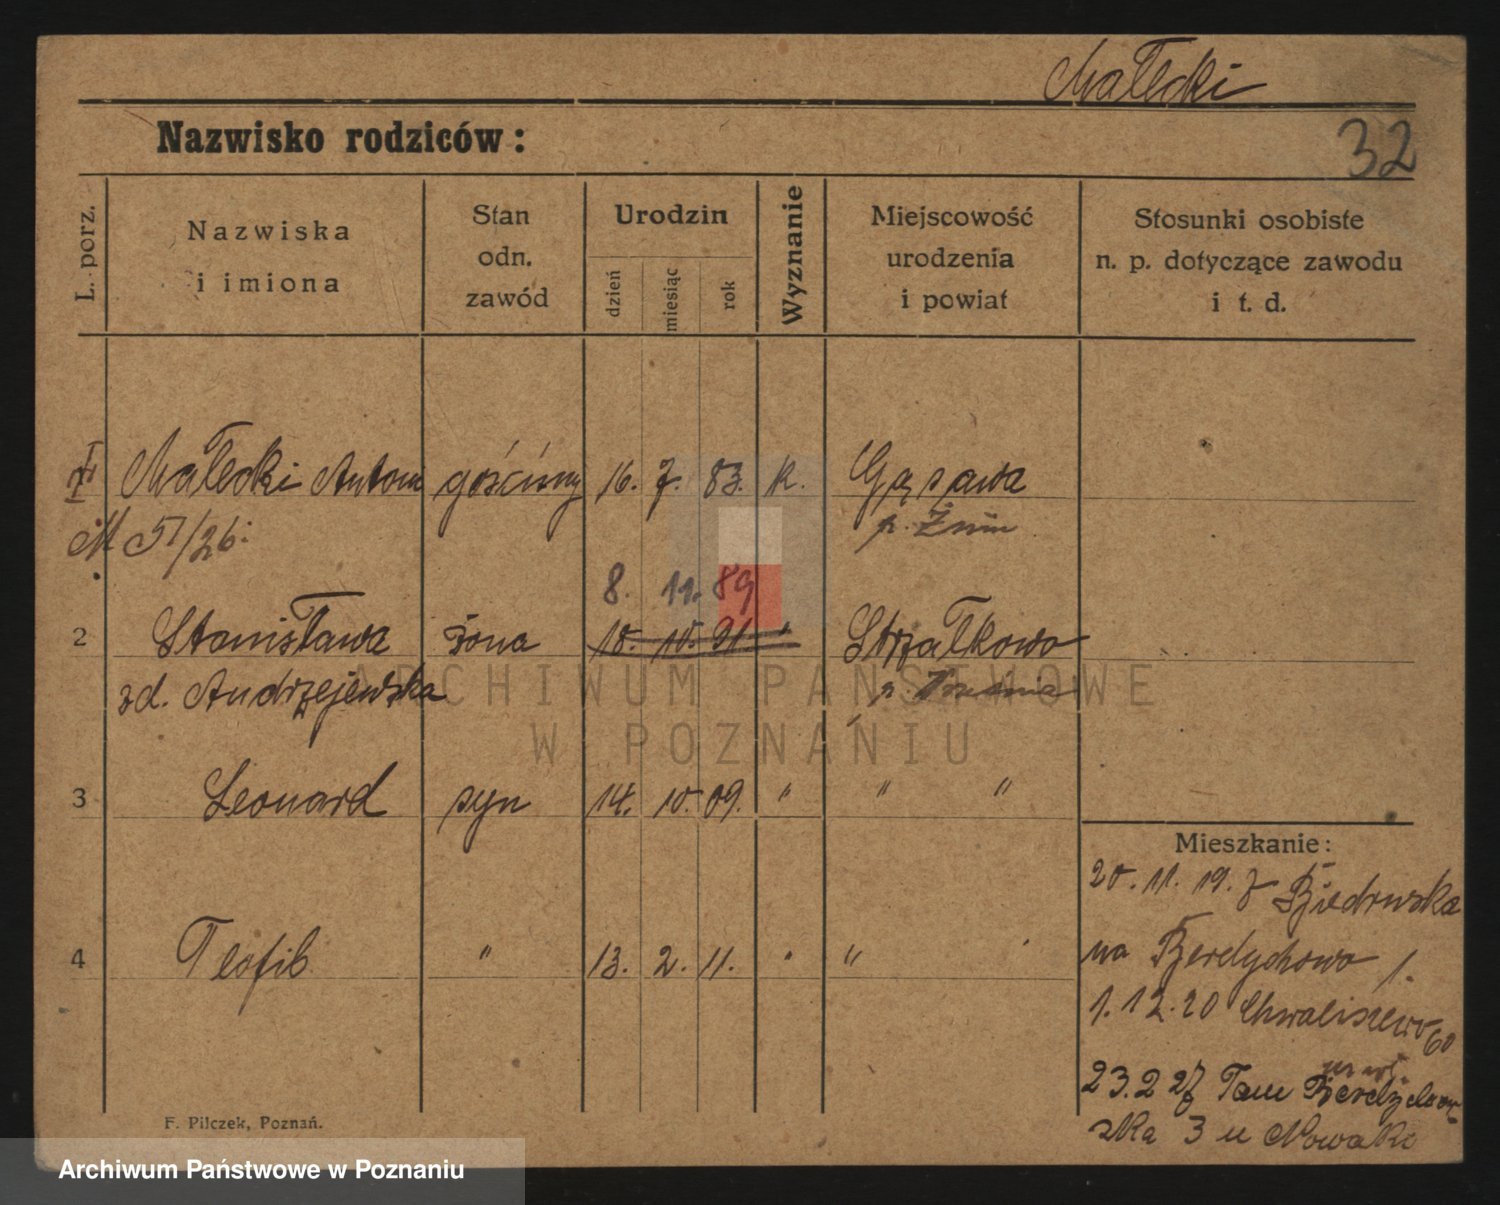 Małecki
Nazwisko rodziców:
32
L. porz.
Nazwiska
i imiona
Stan
odn.
zawód
Urodzin
dzień
miesiąc
rok
Wyznanie
Miejscowość
urodzenia
i powiat
Stosunki osobiste
n. p. dotyczące zawodu
i t. d.
I Małecki Antoni gościnny 16. 7. 83. K. Gąsawa
M 57/26. p. Żnin
8. 11. 89
2 Stanisława żona 10. 10. 91 " Strzałkowo
zd. Andrzejewska p.
3 Leonard syn 14. 10. 09. " " "
4 Teofil " 13. 2. 11. " "
Mieszkanie:
20. 11. 19. z Biedruska
na Berdychowo 1.
1. 12. 20 Chwaliszewo 60
23. 2 27 Tam Berdychow-
ska 3 u Nowaka
F. Pilczek, Poznań.
ARCHIWUM PAŃSTWOWE
W POZNANIU
Archiwum Państwowe w Poznaniu